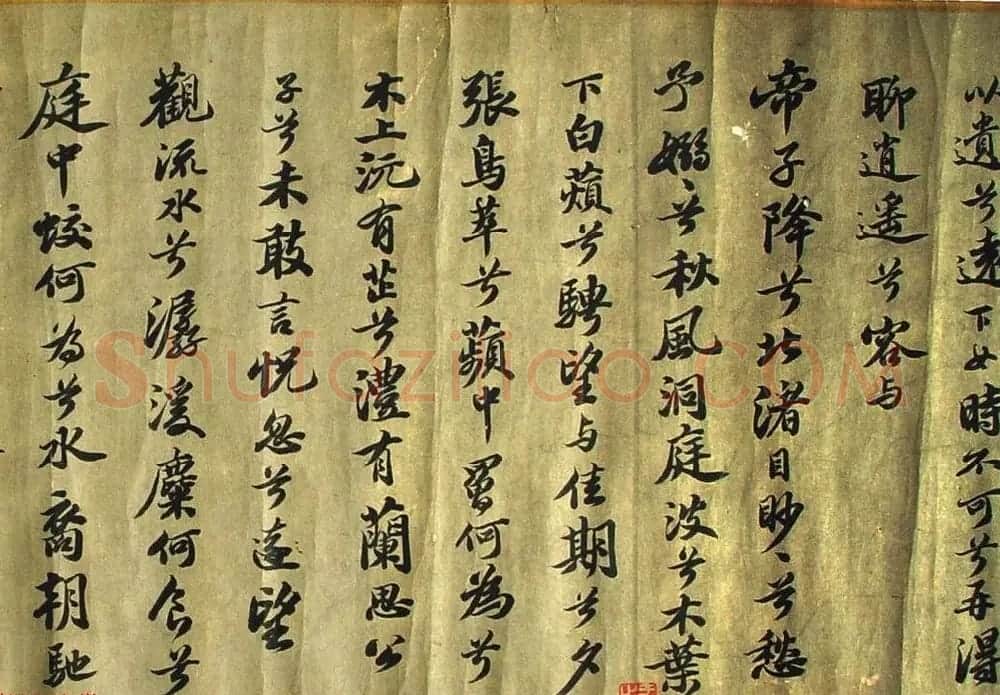 以遺兮遠下女時不可兮再得
聊逍遙兮容与
帝子降兮北渚目眇〻兮愁
予嫋〻兮秋風洞庭波兮木葉
下白薠兮騁望与佳期兮夕
張鳥萃兮蘋中罾何為兮
木上沅有芷兮澧有蘭思公
子兮未敢言怳忽兮遠望
觀流水兮潺湲麋何食兮
庭中蛟何為兮水裔朝馳